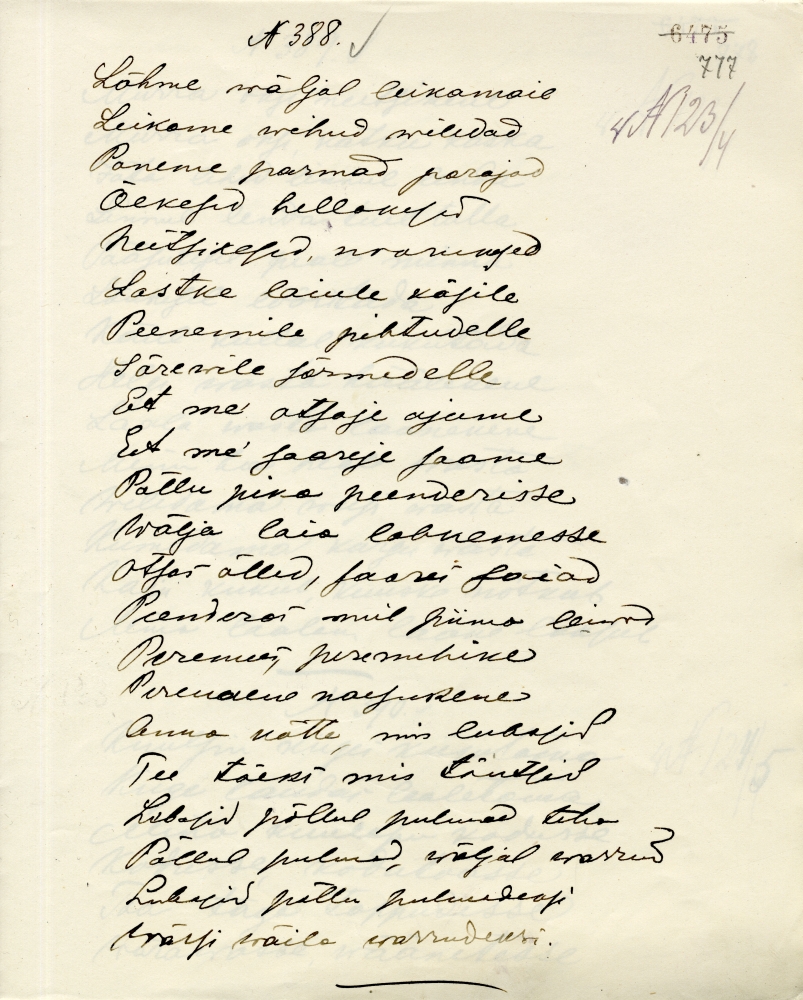 N 388.
6475
777
N 123/4
Lähme wäljal leikamaie
Leikame wihud wiledad
Paneme parmad parajad
Õekesed hellakesed
Neitsikesed, noorukesed
Laske laiule käsile
Peenemile pihtudelle
Sõrewile sõrmedelle
Et me' otsaje ajame
Et me' saareje saame
Põllu pika peenderisse
Wälja laia labuemesse
Otsas õlled, saares saiad
Peenderas meil piima leiwad
Peremees, peremehike
Perenaene naesukene
Anna kätte, mis lubasid
Tee tõeks mis tõutsid
Lubasid põllul pulmad teha
Põllul pulmad, wäljal warrud
Lubasid põllu pulmadeksi
wäila warrudeksi.